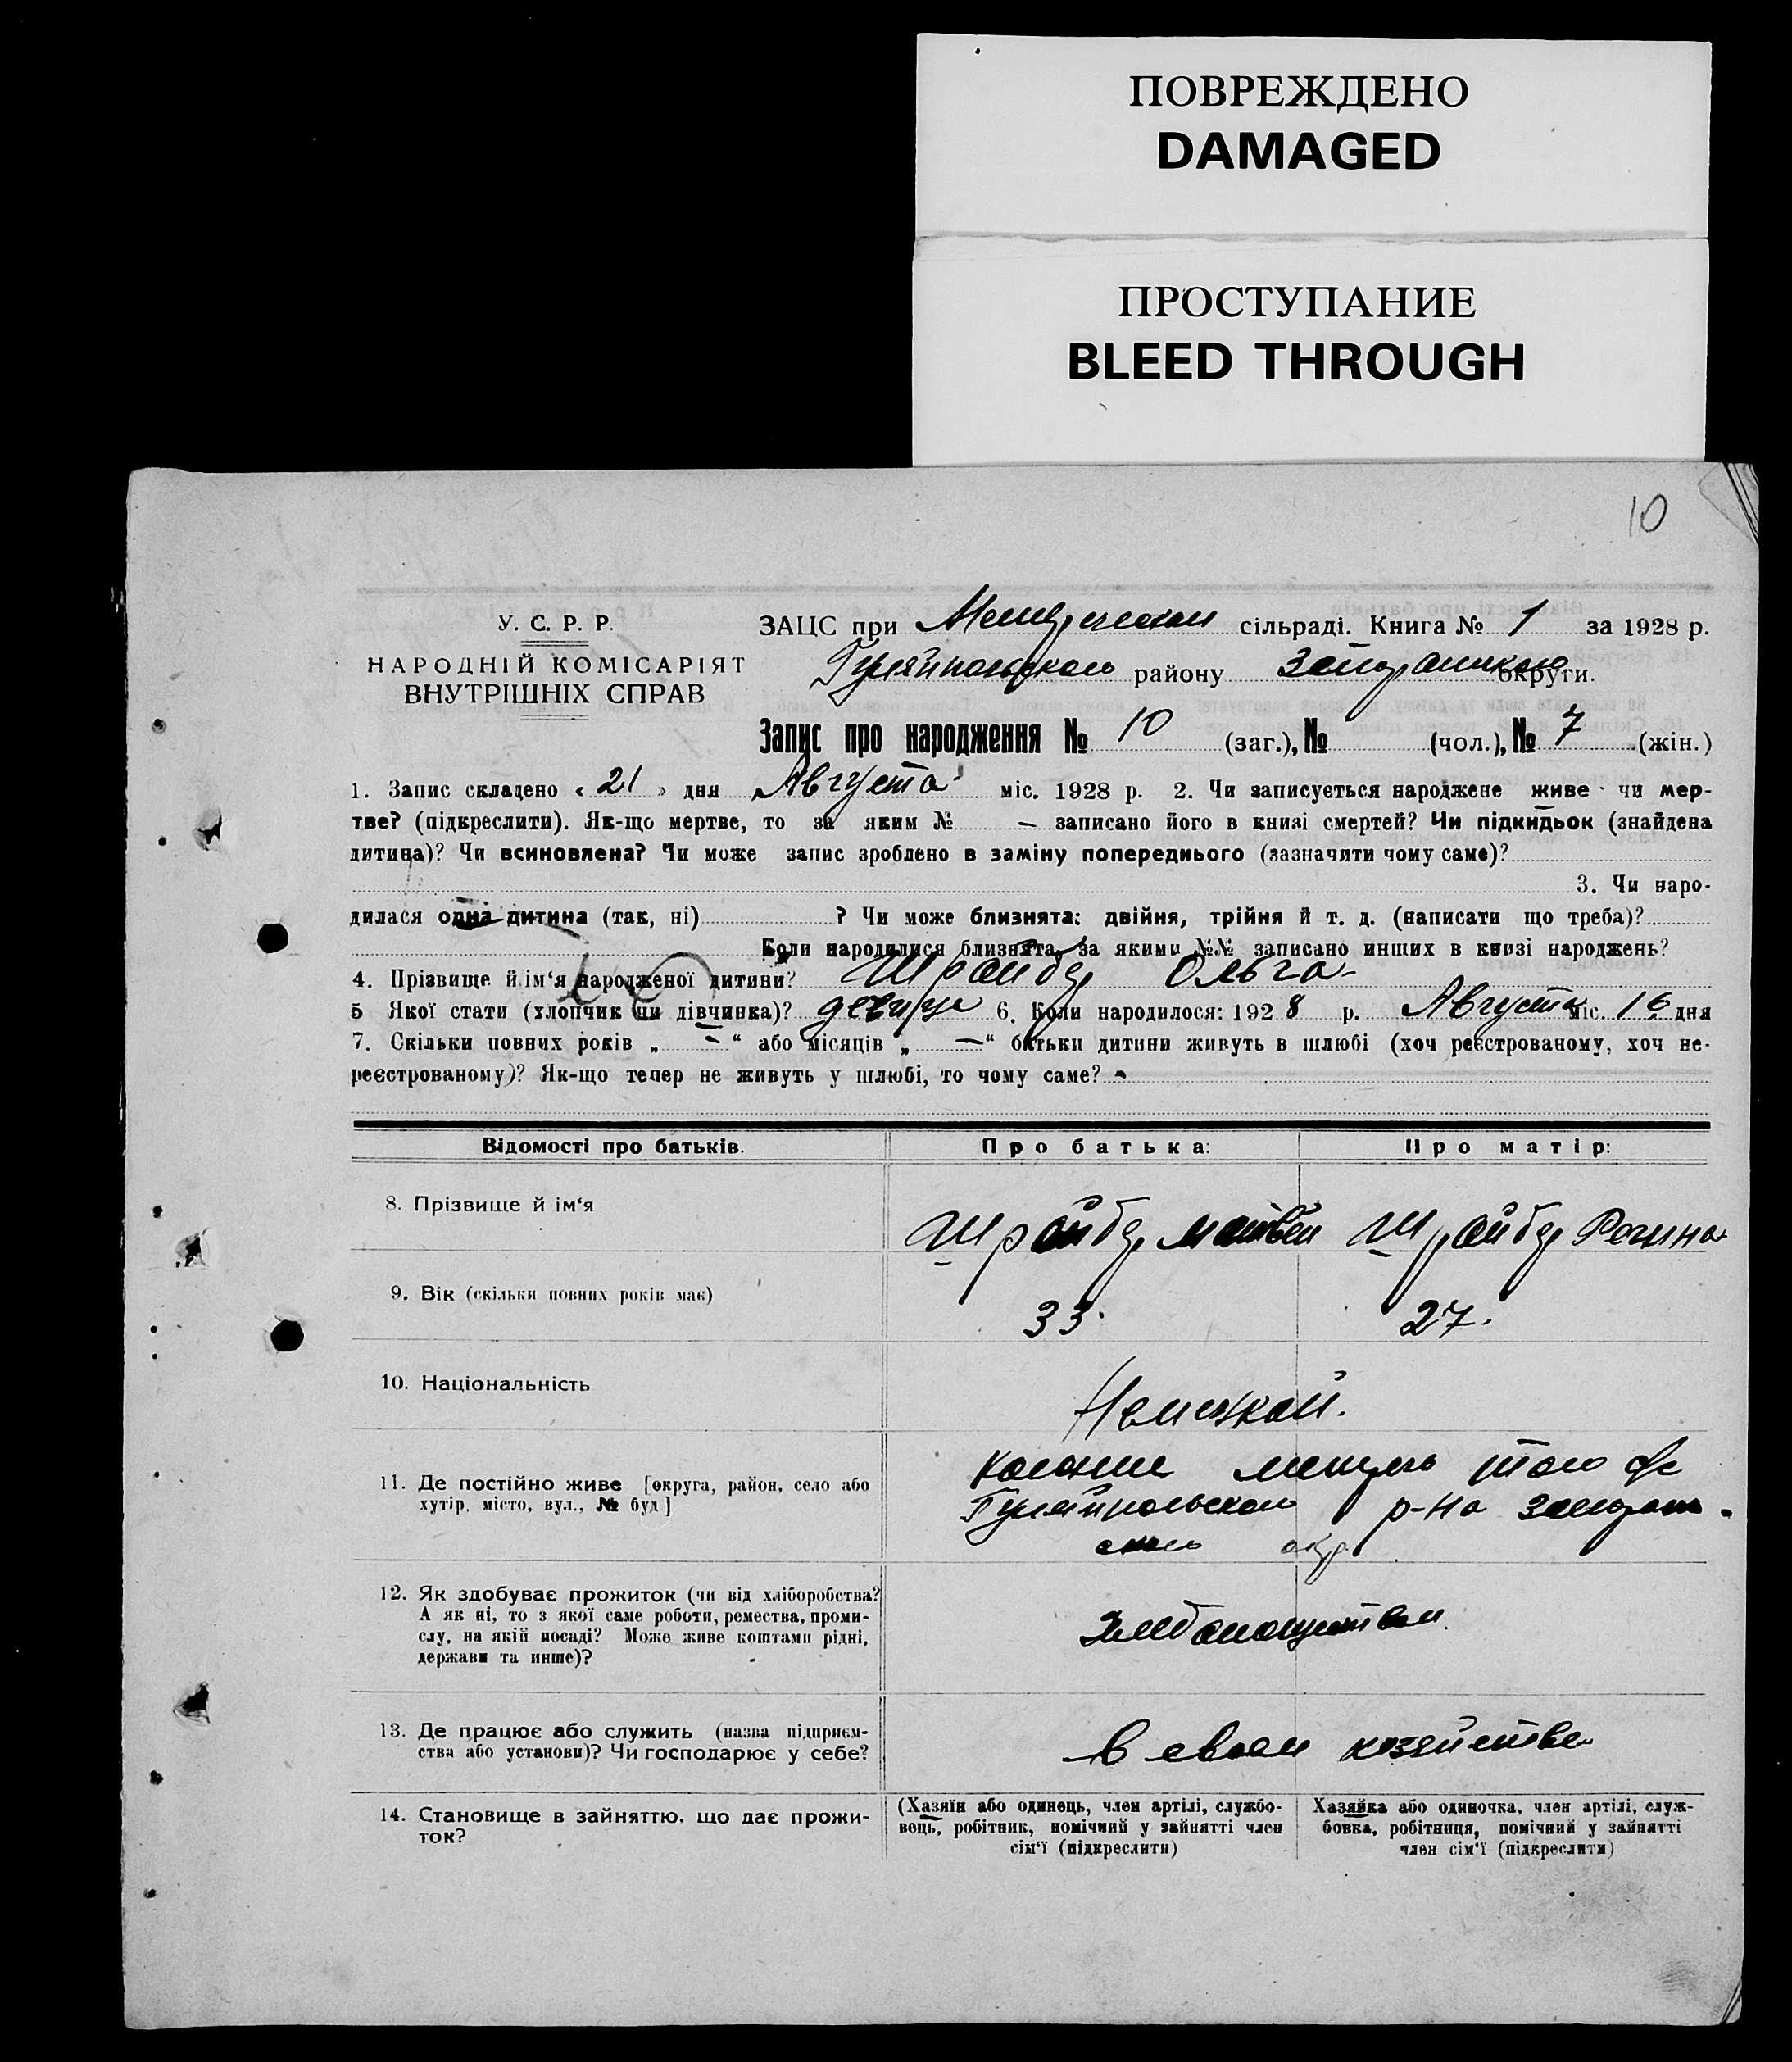 ПОВРЕЖДЕНО
DAMAGED
ПРОСТУПАНИЕ
BLEED THROUGH
10
У. С. Р. Р.
НАРОДНІЙ КОМІСАРІЯТ
ВНУТРІШНІХ СПРАВ
ЗАЦС при сільраді. Книга № 1 за 1928 р.
району округи.
Запис про народження № 10 (заг.), № (чол.), № 7 (жін.)
1. Запис складено « 21 » дня Августа міс. 1928 р. 2. Чи записується народжене живе чи мер-
тве? (підкреслити). Як-що мертве, то за яким № — записано його в книзі смертей? Чи підкидьок (знайдена
дитина)? Чи всиновлена? Чи може запис зроблено в заміну попереднього (зазначити чому саме)?
3. Чи наро-
дилася одна дитина (так, ні) ? Чи може близнята: двійня, трійня й т. д. (написати що треба)?
Коли народилися близнята, за якими №№ записано инших в книзі народжень?
4. Прізвище й ім‘я народженої дитини? Шрайбер Ольга
5 Якої стати (хлопчик чи дівчинка)? девица 6. Коли народилося: 1928 р. Августа міс. 16 дня
7. Скільки повних років „ — “ або місяців „ — “ батьки дитини живуть в шлюбі (хоч реєстрованому, хоч не-
реєстрованому)? Як-що тепер не живуть у шлюбі, то чому саме? -
Відомості про батьків. Про батька: Про матір:
8. Прізвище й ім‘я
Шрайбер Матвей Шрайбер Регина
9. Вік (скільки повних років має)
33. 27.
10. Національність
Немецкой.
11. Де постійно живе [округа, район, село або
хутір, місто, вул., № буд]
р-на
окр
12. Як здобуває прожиток (чи від хліборобства?
А як ні, то з якої саме роботи, ремества, проми-
слу, на якій посаді? Може живе коштами рідні,
держави та инше)?
13. Де працює або служить (назва підприєм-
ства або установи)? Чи господарює у себе?
В своем хозяйстве
14. Становище в зайняттю, що дає прожи-
ток?
(Хазяїн або одинець, член артілі, службо-
вець, робітник, помічний у зайнятті член
сім‘ї (підкреслити)
Хазяйка або одиночка, член артілі, служ-
бовка, робітниця, помічний у зайнятті
член сім‘ї (підкреслити)